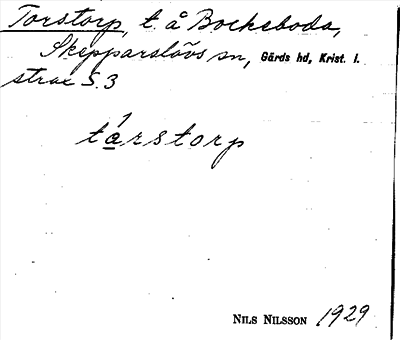 Torstorp, t. å Bockeboda,
Skepparslövs sn, Gärds hd, Krist. l.
strax S. 3
társtorp
NILS NILSSON 1929